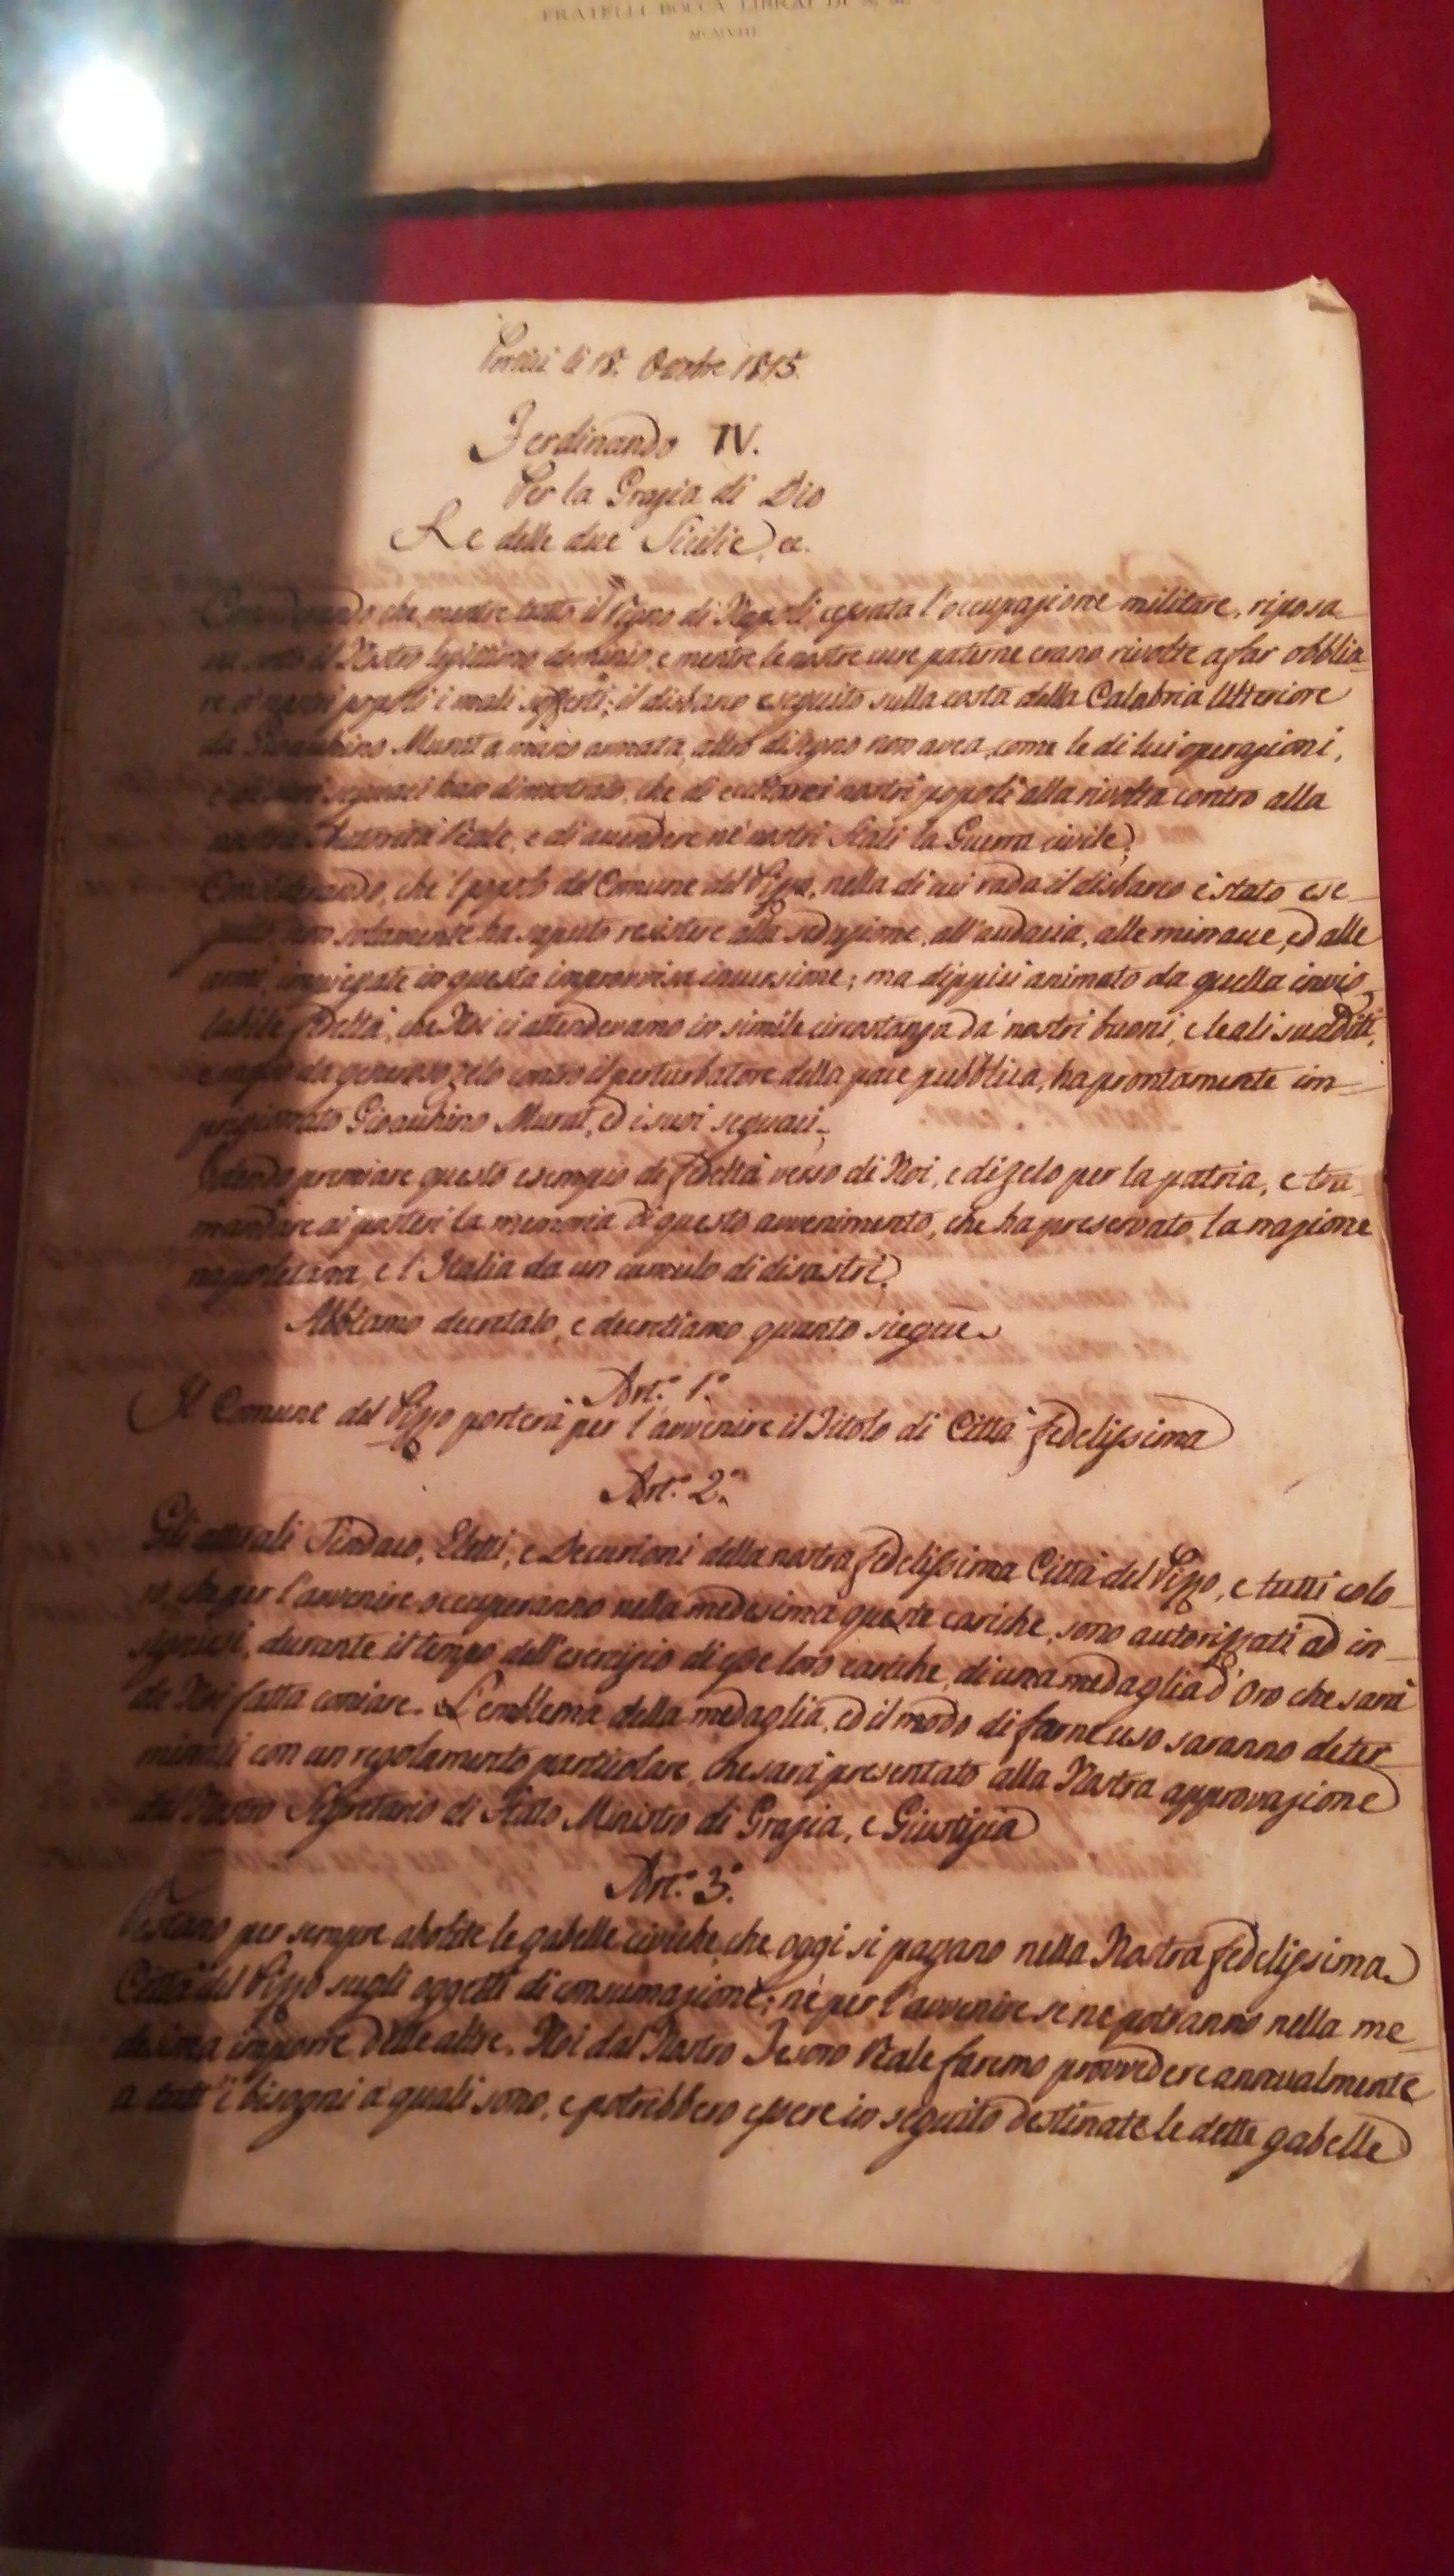 FRATELLI BOCCA LIBRAI DI S. M.
MCMVIII
Portici li 18. Ottobre 1815.
Ferdinando IV.
Per la Grazia di Dio
Re delle due Sicilie, ec.
Considerando che, mentre tutto il Regno di Napoli, cessata l'occupazione militare, riposa
va sotto il Nostro legittimo dominio, e mentre le nostre cure paterne erano rivolte a far obblia-
re a' nostri popoli i mali sofferti; il disbarco eseguito sulla costa della Calabria Ulteriore
da Gioacchino Murat a mano armata, altro disegno non avea, come le di lui operazioni,
e di suoi seguaci han dimostrato, che di eccitare i nostri popoli alla rivolta contro alla
nostra Autorità Reale, e di accendere ne' nostri Stati la Guerra civile;
Considerando, che 'l popolo del Comune del Pizzo, nella di cui rada il disbarco è stato ese-
guito, non solamente ha saputo resistere alla seduzione, all'audacia, alle minacce, ed alle
armi, impiegate in questa improvvisa incursione; ma dippiù animato da quella invio-
labile fedeltà, che Noi ci attendevamo in simile circostanza da' nostri buoni, e leali sudditi,
e mosso da generoso zelo contro il perturbatore della pace pubblica, ha prontamente im-
prigionato Gioacchino Murat, ed i suoi seguaci;
Volendo premiare questo esempio di fedeltà verso di Noi, e di zelo per la patria, e tra-
mandare ai posteri la memoria di questo avvenimento, che ha preservato la nazione
napoletana, e l'Italia da un cumulo di disastri;
Abbiamo decretato, e decretiamo quanto siegue.
Art.° 1.°
Il Comune del Pizzo porterà per l'avvenire il Titolo di Città fedelissima
Art.° 2.°
Gli attuali Sindaco, Eletti, e Decurioni della nostra fedelissima Città del Pizzo, e tutti colo-
ro, che per l'avvenire occuperanno nella medesima queste cariche, sono autorizzati ad in-
signirsi, durante il tempo dell'esercizio di esse loro cariche, di una medaglia d'Oro che sarà
da Noi fatta coniare. L'emblema della medaglia, ed il modo di farne uso saranno deter-
minati con un regolamento particolare, che sarà presentato alla Nostra approvazione
dal Nostro Segretario di Stato Ministro di Grazia, e Giustizia
Art.° 3.°
Restano per sempre abolite le gabelle civiche, che oggi si pagano nella Nostra fedelissima
Città del Pizzo sugli oggetti di consumazione; nè per l'avvenire se ne potranno nella me-
desima imporre delle altre. Noi dal Nostro Tesoro Reale faremo provvedere annualmente
a tutt'i bisogni a' quali sono, e potrebbero essere in seguito destinate le dette gabelle